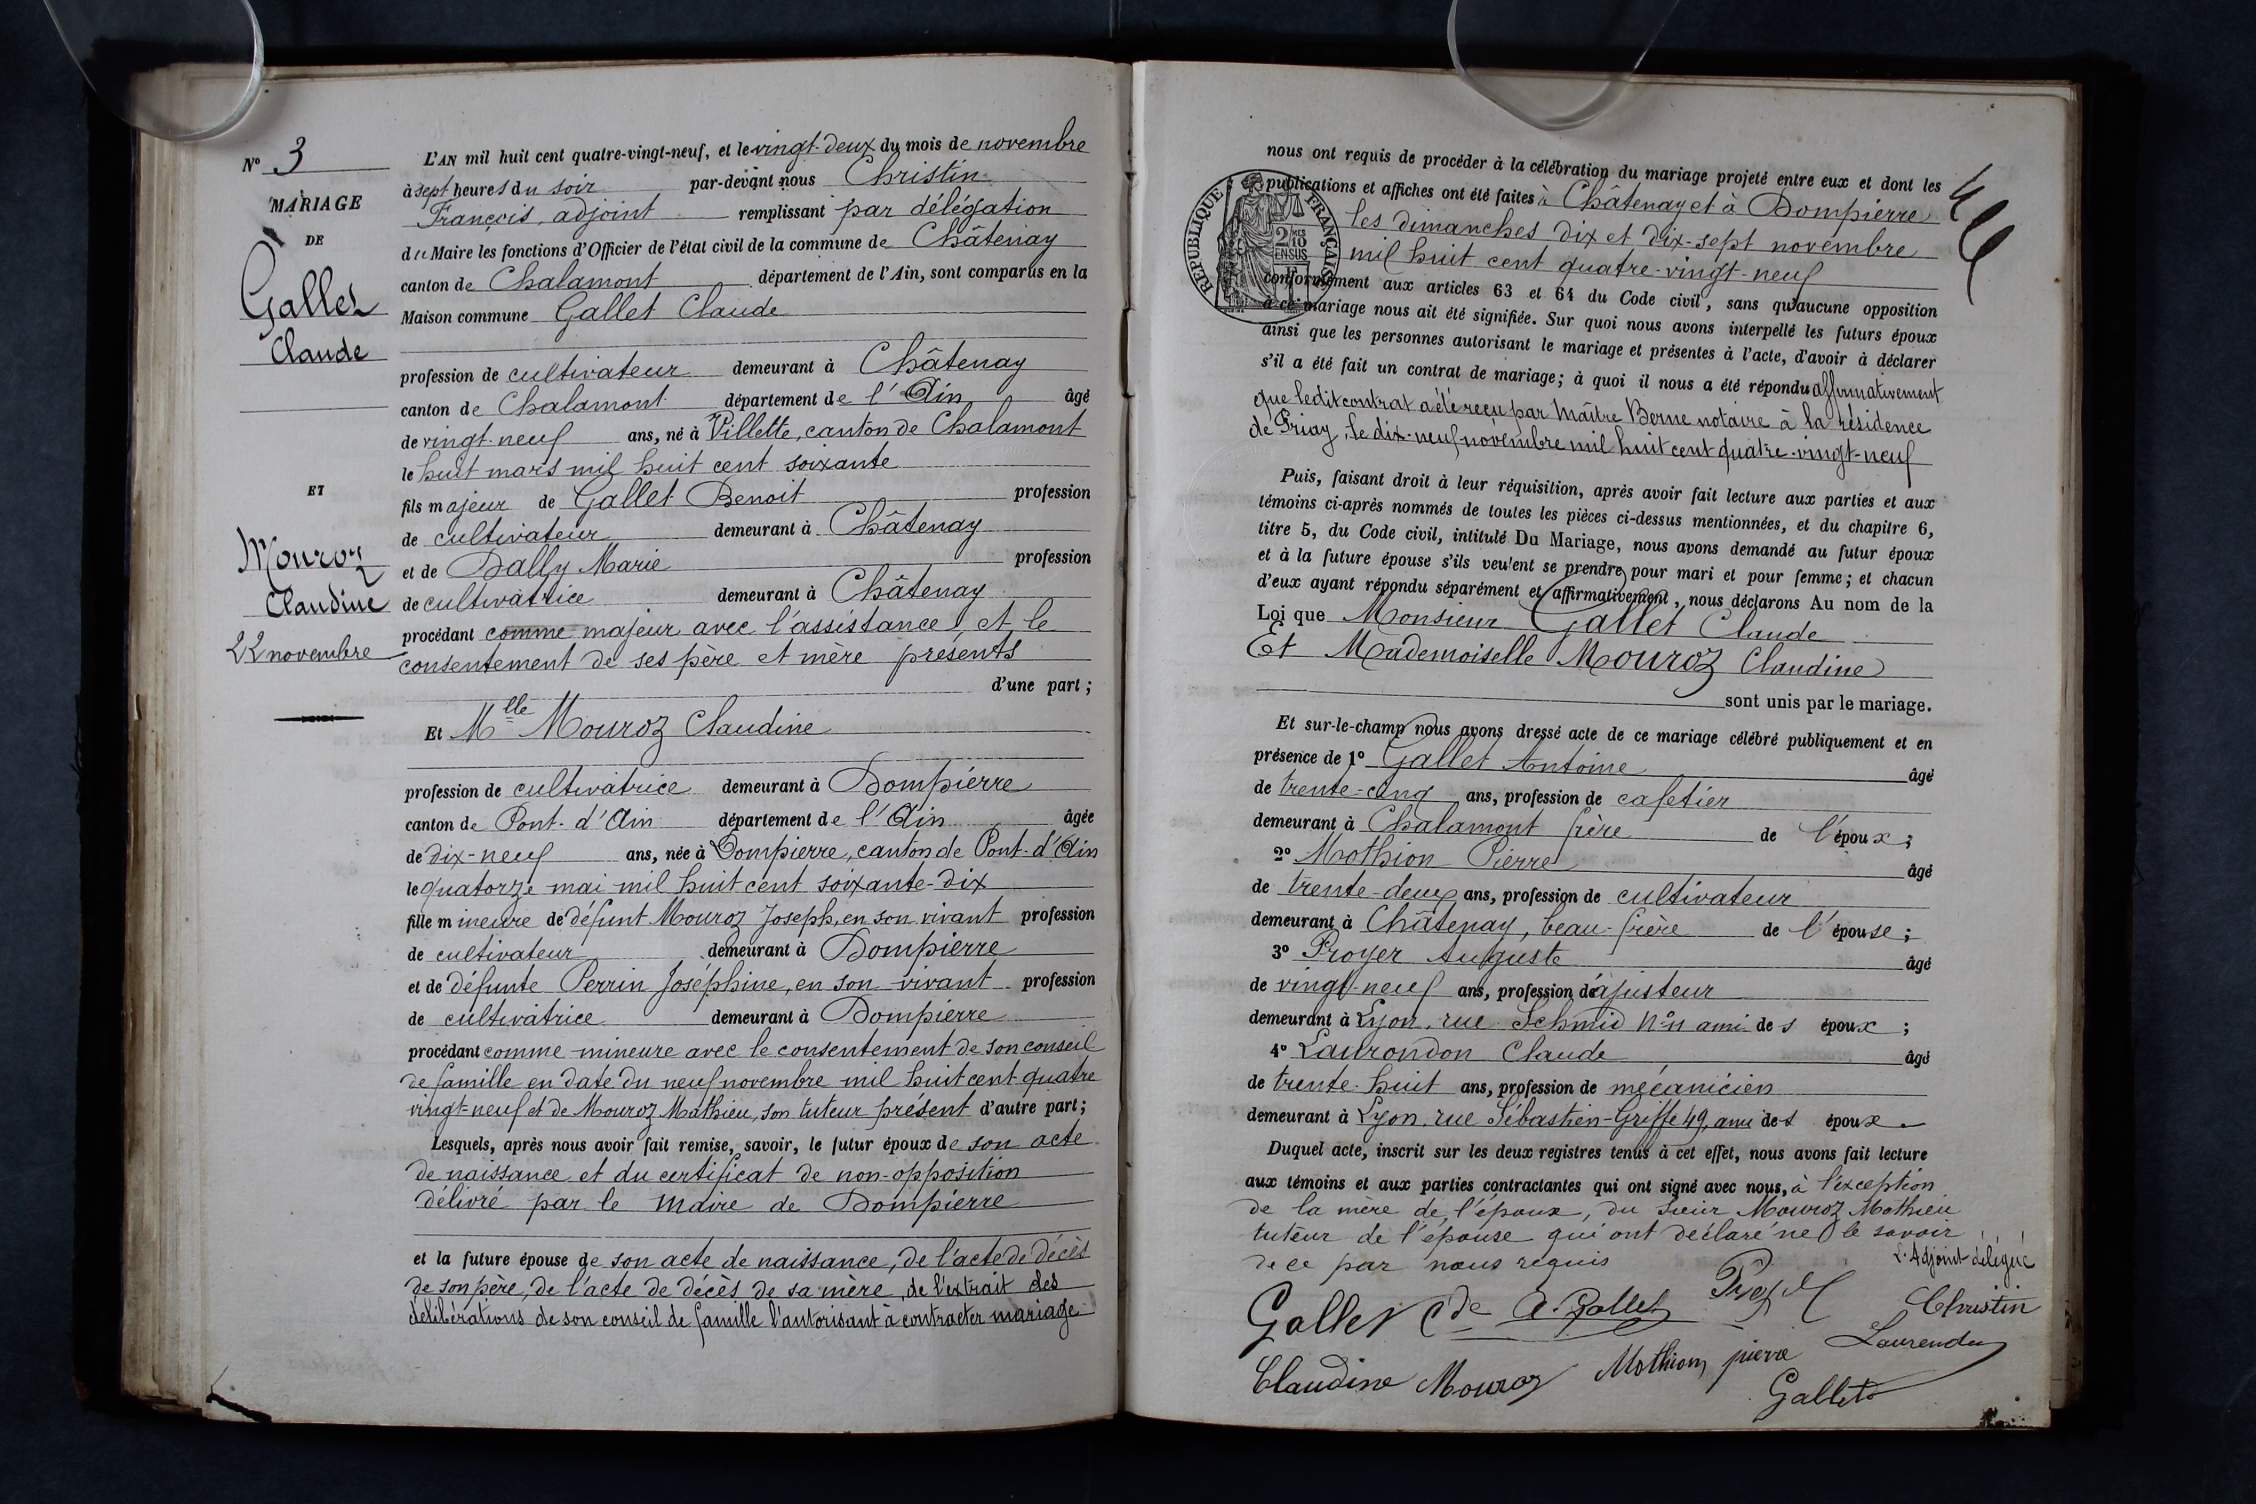 N° 3
MARIAGE
DE
Gallet
Claude
ET
Mouroz
Claudine
22 novembre
L'AN mil huit cent quatre-vingt-neuf, et le vingt-deux du mois de novembre
à sept heures du soir par-devant nous Christin
François, adjoint remplissant par délégation
du Maire les fonctions d'Officier de l'état civil de la commune de Châtenay
canton de Chalamont département de l'Ain, sont comparus en la
Maison commune Gallet Claude
profession de cultivateur demeurant à Châtenay
canton de Chalamont département de l'Ain âgé
de vingt-neuf ans, né à Villette, canton de Chalamont
le huit mars mil huit cent soixante
fils majeur de Gallet Benoit profession
de cultivateur demeurant à Châtenay
et de Dally Marie profession
de cultivatrice demeurant à Châtenay
procédant comme majeur avec l'assistance et le
consentement de ses père et mère présents
d'une part;
Et Mlle Mouroz Claudine
profession de cultivatrice demeurant à Dompierre
canton de Pont-d'Ain département de l'Ain âgée
de dix-neuf ans, née à Dompierre, canton de Pont-d'Ain
le quatorze mai mil huit cent soixante-dix
fille mineure de défunt Mouroz Joseph, en son vivant profession
de cultivateur demeurant à Dompierre
et de défunte Perrin Joséphine, en son vivant profession
de cultivatrice demeurant à Dompierre
procédant comme mineure avec le consentement de son conseil
de famille en date du neuf novembre mil huit cent quatre
vingt-neuf et de Mouroz Mathieu, son tuteur présent d'autre part;
Lesquels, après nous avoir fait remise, savoir, le futur époux de son acte
de naissance et du certificat de non-opposition
délivré par le Maire de Dompierre
et la future épouse de son acte de naissance, de l'acte de décès
de son père, de l'acte de décès de sa mère, de l'extrait des
délibérations de son conseil de famille l'autorisant à contracter mariage
nous ont requis de procéder à la célébration du mariage projeté entre eux et dont les
publications et affiches ont été faites à Châtenay et à Dompierre
les dimanches dix et dix-sept novembre
mil huit cent quatre-vingt-neuf
conformément aux articles 63 et 64 du Code civil, sans qu'aucune opposition
à ce mariage nous ait été signifiée. Sur quoi nous avons interpellé les futurs époux
ainsi que les personnes autorisant le mariage et présentes à l'acte, d'avoir à déclarer
s'il a été fait un contrat de mariage; à quoi il nous a été répondu affirmativement
que ledit contrat a été reçu par Maître Berne notaire à la résidence
de Priay, le dix-neuf novembre mil huit cent quatre-vingt-neuf
RÉPUBLIQUE FRANÇAISE
2/10 EN SUS
Puis, faisant droit à leur réquisition, après avoir fait lecture aux parties et aux
témoins ci-après nommés de toutes les pièces ci-dessus mentionnées, et du chapitre 6,
titre 5, du Code civil, intitulé Du Mariage, nous avons demandé au futur époux
et à la future épouse s'ils veulent se prendre pour mari et pour femme; et chacun
d'eux ayant répondu séparément et affirmativement, nous déclarons Au nom de la
Loi que Monsieur Gallet Claude
Et Mademoiselle Mouroz Claudine
sont unis par le mariage.
Et sur-le-champ nous avons dressé acte de ce mariage célébré publiquement et en
présence de 1° Gallet Antoine âgé
de trente-cinq ans, profession de cafetier
demeurant à Chalamont frère de l'époux;
2° Mothion Pierre âgé
de trente-deux ans, profession de cultivateur
demeurant à Châtenay, beau-frère de l'épouse;
3° Proyer Auguste âgé
de vingt-neuf ans, profession d'ajusteur
demeurant à Lyon, rue Schmid N° 11 ami des époux;
4° Laurondon Claude âgé
de trente-huit ans, profession de mécanicien
demeurant à Lyon, rue Sébastien-Griffe 49, ami des époux.
Duquel acte, inscrit sur les deux registres tenus à cet effet, nous avons fait lecture
aux témoins et aux parties contractantes qui ont signé avec nous, à l'exception
de la mère de l'époux, du sieur Mouroz Mathieu
tuteur de l'épouse qui ont déclaré ne le savoir
de ce par nous requis
L'Adjoint délégué
Gallet Cde A. Gallet Christin
Claudine Mouroz Mothion pierre Laurendon
Gallet